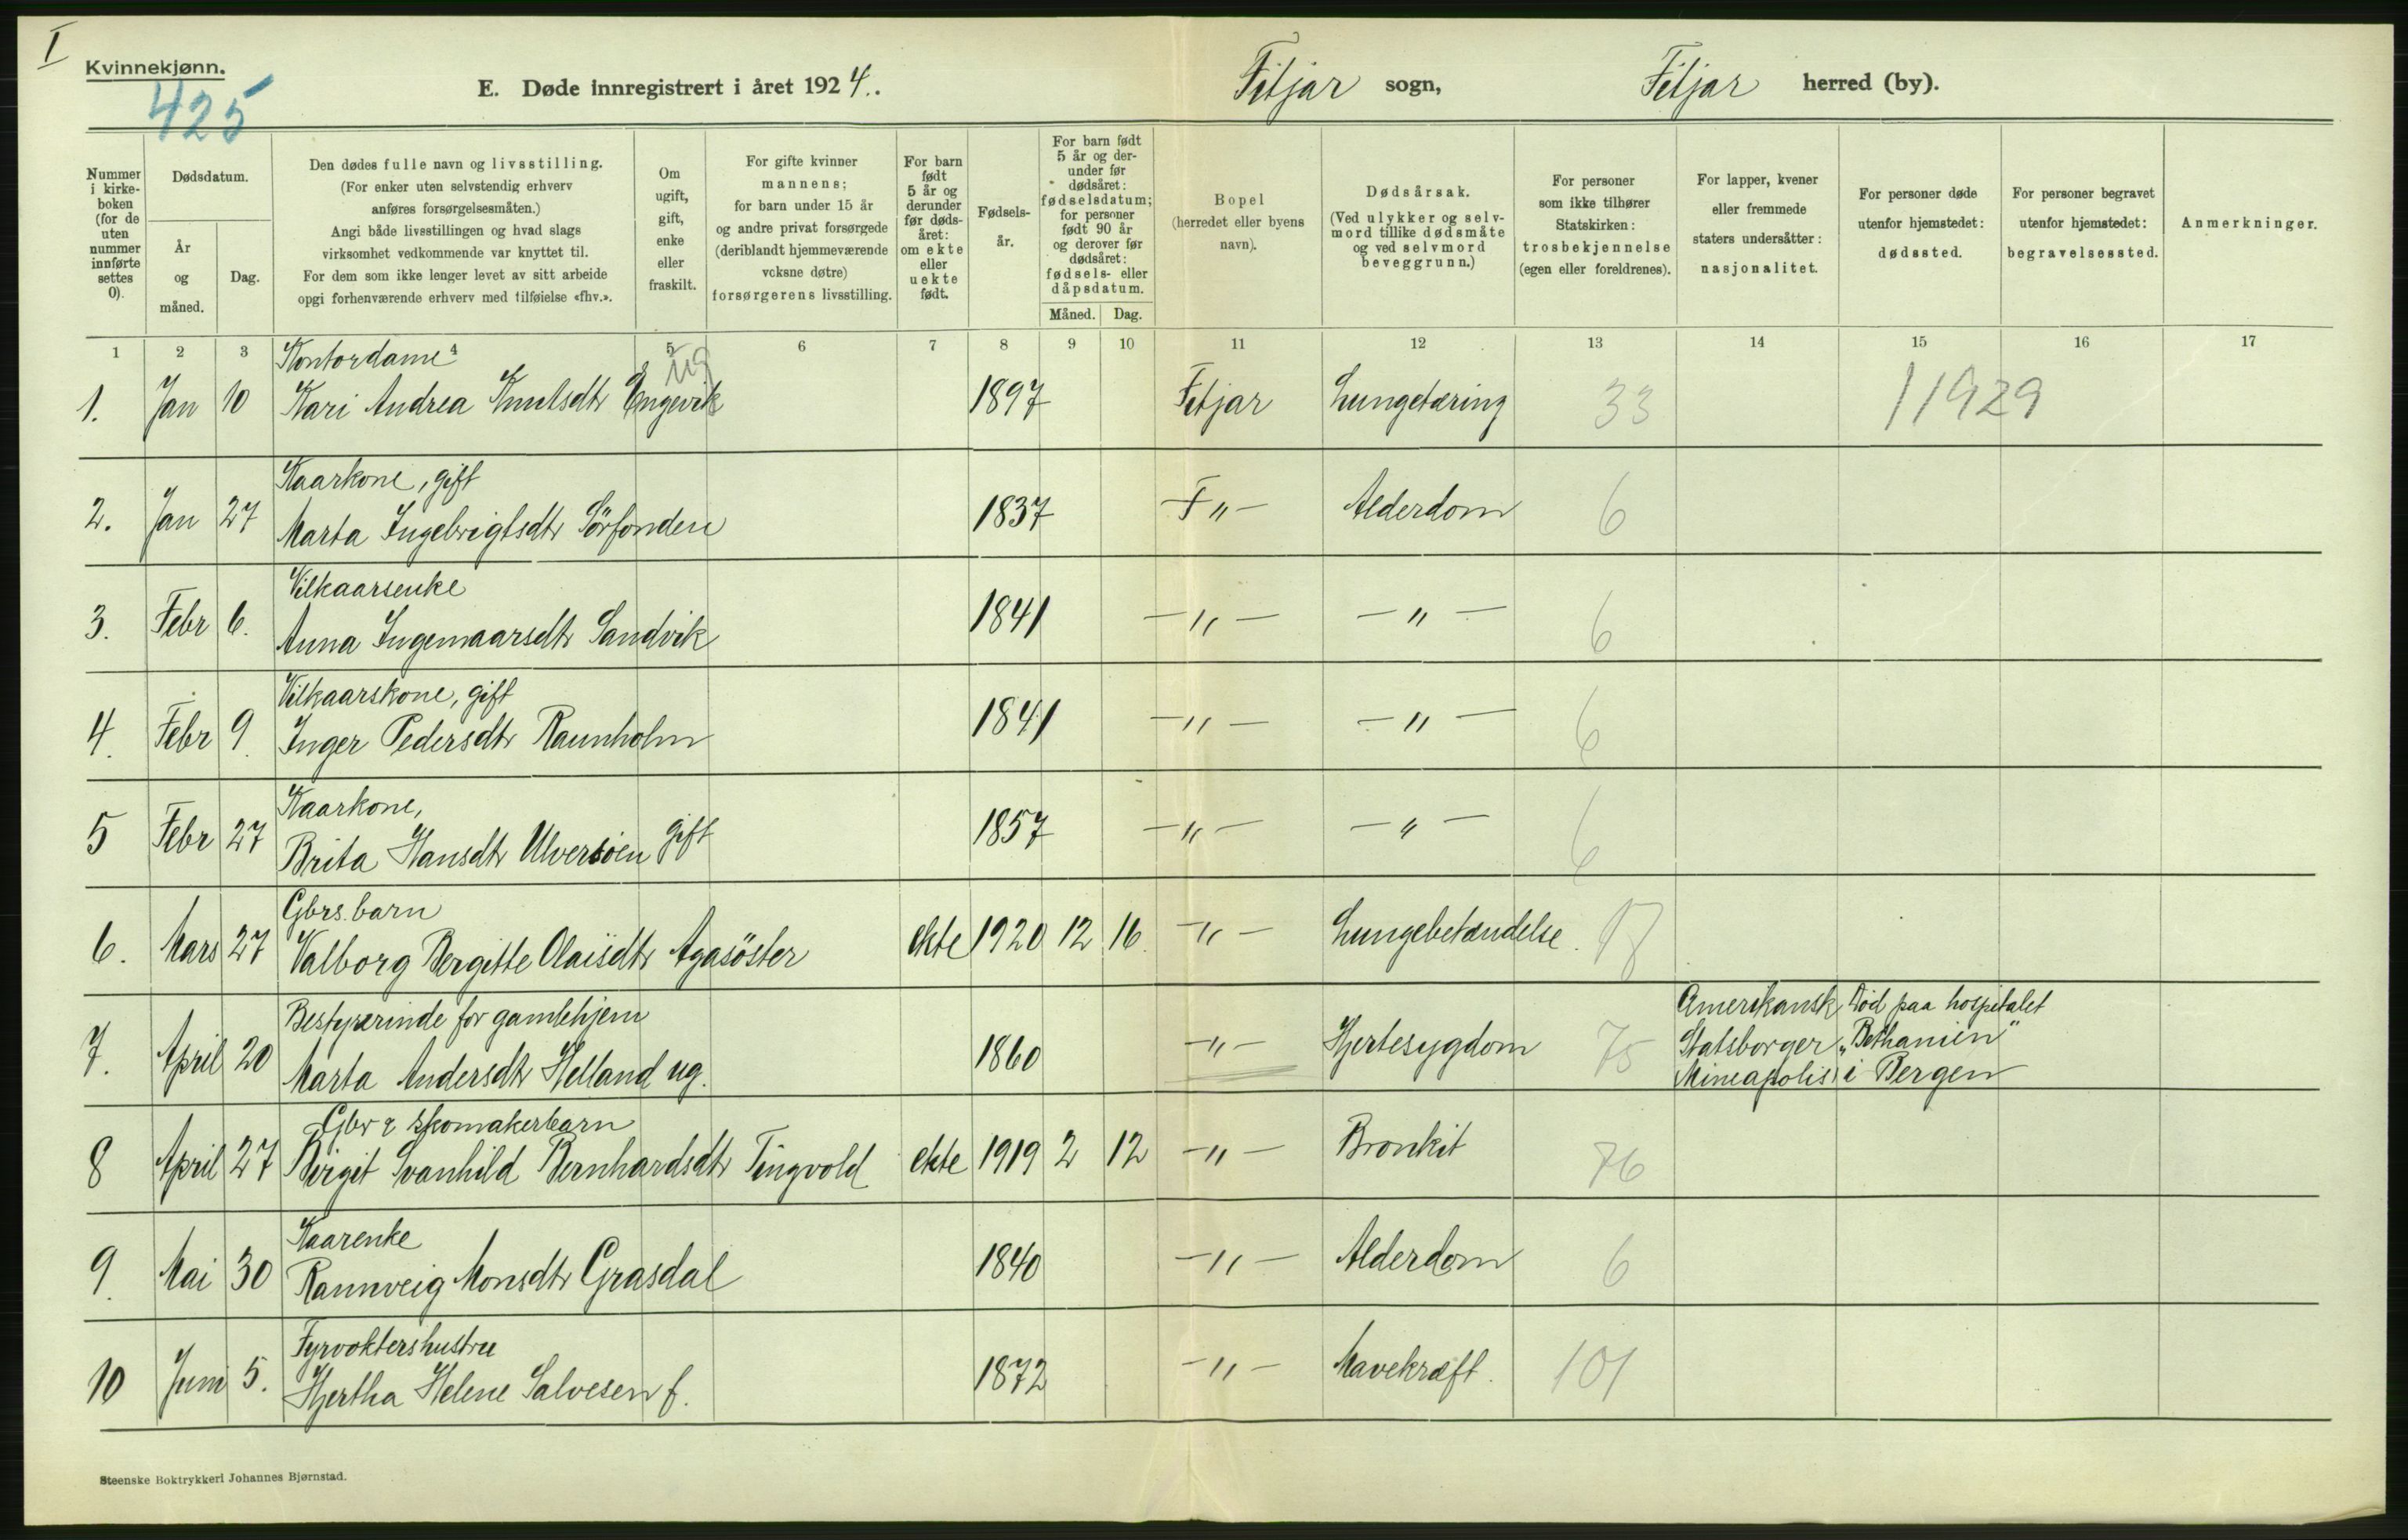 I
Kvinnekjønn.
425
E. Døde innregistrert i året 1924.
Fitjar sogn,
Fitjar herred (by).
Nummer i kirke-boken (for de uten nummer innførte settes 0).
Dødsdatum.
År og måned.
Dag.
Den dødes fulle navn og livsstilling.
(For enker uten selvstendig erhverv
anføres forsørgelsesmåten.)
Angi både livsstillingen og hvad slags
virksomhet vedkommende var knyttet til.
For dem som ikke lenger levet av sitt arbeide
opgi forhenværende erhverv med tilføielse «fhv.».
Om ugift, gift, enke eller fraskilt.
For gifte kvinner
mannens;
for barn under 15 år
og andre privat forsørgede
(deriblandt hjemmeværende
voksne døtre)
forsørgerens livsstilling.
For barn født 5 år og derunder før døds-året: om ekte eller uekte født.
Fødsels-år.
For barn født 5 år og der-under før dødsåret: fødselsdatum; for personer født 90 år og derover før dødsåret: fødsels- eller dåpsdatum.
Måned. Dag.
Bopel
(herredet eller byens
navn).
Dødsårsak.
(Ved ulykker og selv-
mord tillike dødsmåte
og ved selvmord
beveggrunn.)
For personer
som ikke tilhører
Statskirken:
trosbekjennelse
(egen eller foreldrenes).
For lapper, kvener
eller fremmede
staters undersåtter:
nasjonalitet.
For personer døde
utenfor hjemstedet:
dødssted.
For personer begravet
utenfor hjemstedet:
begravelsessted.
Anmerkninger.
1 2 3 4 5 6 7 8 9 10 11 12 13 14 15 16 17
Kontordame ug
1. Jan 10 Kari Andrea Knutsdtr Engevik 1897 Fitjar Lungetæring 33 11929
Kaarkone, gift
2. Jan 27 Marta Ingebrigtsdtr Sörfonden 1837 F - " - Alderdom 6
Vilkaarsenke
3. Febr 6. Anna Ingemaarsdtr Sandvik 1841 - " - - " - 6
Vilkaarskone, gift
4. Febr 9. Inger Pedersdtr Raunholm 1841 - " - - " - 6
Kaarkone,
5 Febr 27 Brita Hansdtr Ulversöen gift 1857 - " - - " - 6
Gbrs. barn
6. Mars 27 Valborg Bergitte Olaisdtr Agasöster ekte 1920 12 16 - " - Lungebetændelse.
Bestyrerinde for gamlehjem
7. April 20 Marta Andersdtr Helland ug. 1860 - " - Hjertesygdom 75
Amerikansk
Statsborger
Mineapolis
Död paa hospitalet
"Bethanien"
i Bergen
Gbr & skomakerbarn
8 April 27 Birgit Svanhild Bernhardsdtr Tingvold ekte 1919 2 12 - " - Bronkit 76
Kaarenke
9. Mai 30 Rannveig Monsdtr Grasdal 1840 - " - Alderdom 6
Fyrvoktershustru
10 Juni 5. Hjertha Helene Salvesen f. 1872 - " - Mavekræft. 101
Steenske Boktrykkeri Johannes Bjørnstad.